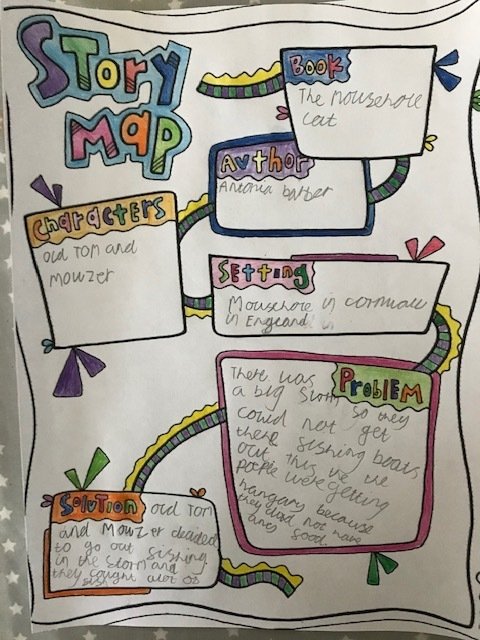 Story
Map
Book
The Mousehole
cat
Author
Antonia barber
Characters
old Tom and
Mowzer
Setting
Mousehole in cornwall
in England
Problem
There was
a big storm so they
could not get
there fishing boats
out this
people were getting
hangary because
they did not have
any food.
Solution
old Tom
and Mowzer decided
to go out fishing
in the storm and
they cought alot of
fish